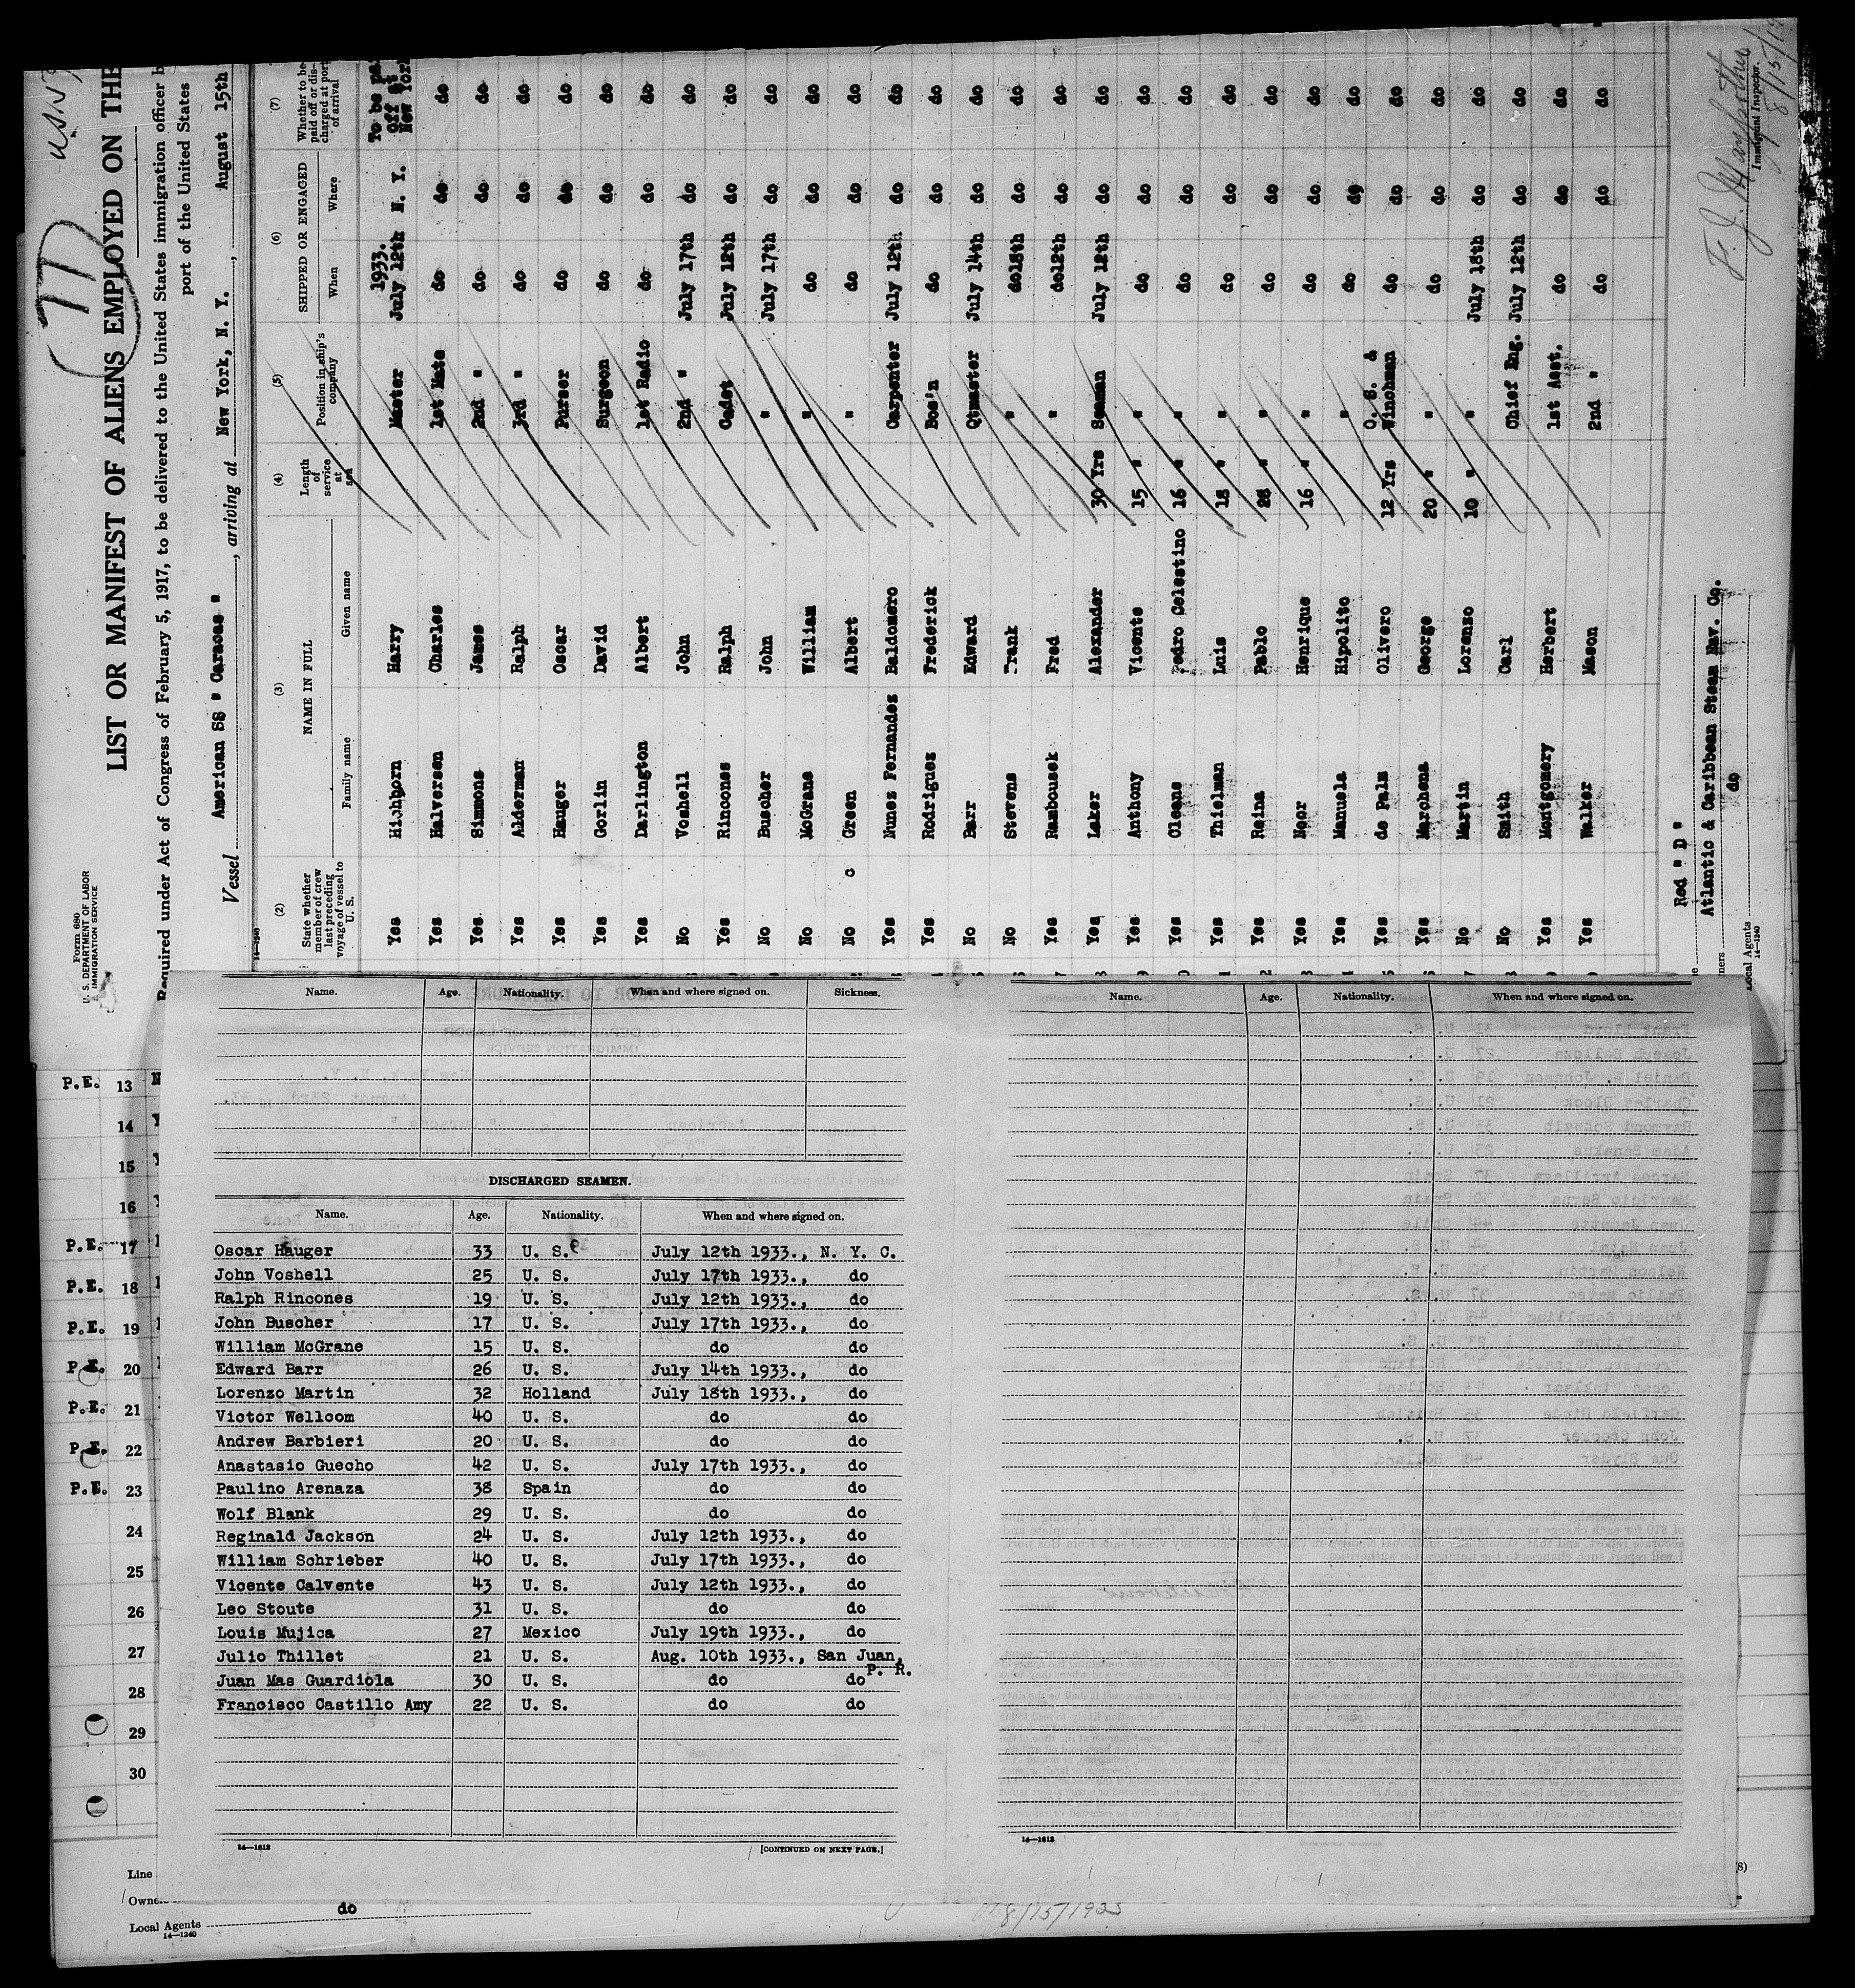 77
Form 680
U. S. DEPARTMENT OF LABOR
IMMIGRATION SERVICE
LIST OR MANIFEST OF ALIENS EMPLOYED ON THE
Required under Act of Congress of February 5, 1917, to be delivered to the United States immigration officer b
port of the United States
Vessel American SS " Caracas " , arriving at New York, N. Y. , August 15th
14—1240
(2) (3) (4) (5) (6) (7)
State whether member of crew last preceding voyage of vessel to U. S. NAME IN FULL Length of service at sea Position in ship's company SHIPPED OR ENGAGED Whether to be paid off or discharged at port of arrival
Family name Given name When Where
1933. To be pa
off at
Yes Hichborn Harry Master July 12th N. Y. New York
Yes Halversen Charles 1st Mate do do do
Yes Simmons James 2nd " do do do
Yes Alderman Ralph 3rd " do do do
Yes Hauger Oscar Purser do do do
Yes Gorlin David Surgeon do do do
Yes Darlington Albert 1st Radio do do do
No Voshell John 2nd " July 17th do do
Yes Rincones Ralph Cadet July 12th do do
No Buscher John " July 17th do do
No McGrane William " do do do
No Green Albert " do do do
Yes Nunez Fernandez Baldomero Carpenter July 12th do do
Yes Rodriguez Frederick Bos'n do do do
No Barr Edward Qtmaster July 14th do do
No Stevens Frank " do18th do do
Yes Rambousek Fred " do12th do do
Yes Laker Alexander 30 Yrs Seaman July 12th do do
Yes Anthony Vicente 15 " " do do do
Yes Cleans Pedro Celestino 16 " " do do do
Yes Thielman Luis 18 " " do do do
Yes Reina Pablo 28 " " do do do
Yes Noor Henrique 16 " " do do do
Yes Manuela Hipolito " do do do
Yes de Palm Olivero 12 Yrs O. S. & Winchman do do do
Yes Marchena George 20 " " do do do
No Martin Lorenzo 10 " " July 18th do do
No Smith Carl Chief Eng. July 12th do do
Yes Montgomery Herbert 1st Asst. do do do
Yes Walker Mason 2nd " do do do
Red " D "
Atlantic & Caribbean Steam Nav. Co.
do
Local Agents
14—1240
Immigrant Inspector.
Name. Age. Nationality. When and where signed on. Sickness.
DISCHARGED SEAMEN.
Name. Age. Nationality. When and where signed on.
Oscar Hauger 33 U. S. July 12th 1933., N. Y. C.
John Voshell 25 U. S. July 17th 1933., do
Ralph Rincones 19 U. S. July 12th 1933., do
John Buscher 17 U. S. July 17th 1933., do
William McGrane 15 U. S. do do
Edward Barr 26 U. S. July 14th 1933., do
Lorenzo Martin 32 Holland July 18th 1933., do
Victor Wellcom 40 U. S. do do
Andrew Barbieri 20 U. S. do do
Anastasio Guecho 42 U. S. July 17th 1933., do
Paulino Arenaza 38 Spain do do
Wolf Blank 29 U. S. do do
Reginald Jackson 24 U. S. July 12th 1933., do
William Schrieber 40 U. S. July 17th 1933., do
Vicente Calvente 43 U. S. July 12th 1933., do
Leo Stoute 31 U. S. do do
Louis Mujica 27 Mexico July 19th 1933., do
Julio Thillet 21 U. S. Aug. 10th 1933., San Juan, P. R.
Juan Mas Guardiola 30 U. S. do do
Francisco Castillo Amy 22 U. S. do do
14—1613 [CONTINUED ON NEXT PAGE.]
Name. Age. Nationality. When and where signed on.
14—1613
P.E. 13
14
15
16
P.E. 17
P.E. 18
P.E. 19
P.E. 20
P.E. 21
P.E. 22
P.E. 23
24
25
26
27
28
29
30
Line
Local Agents do
14—1240